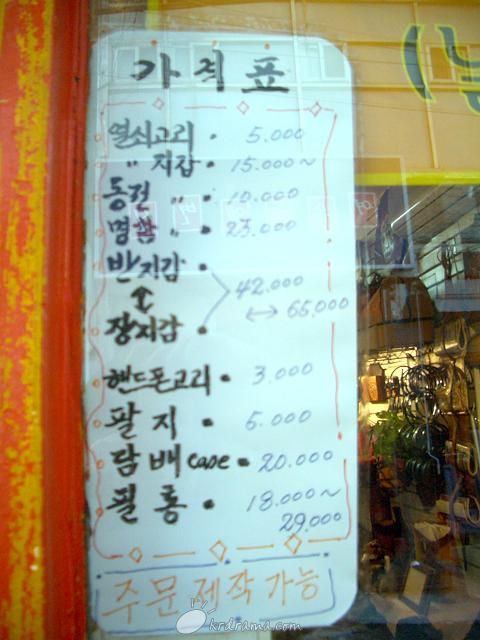 가격표
열쇠고리 • 5.000
" 지갑 • 15.000~
동전 " • 10.000
명함 " • 25.000
반지갑 •
42.000
↔ 65,000
장지갑 •
핸드폰고리 • 3.000
팔지 • 6.000
담배case • 20.000
필통 • 18.000~
29.000
주문제작가능
krdrama.com